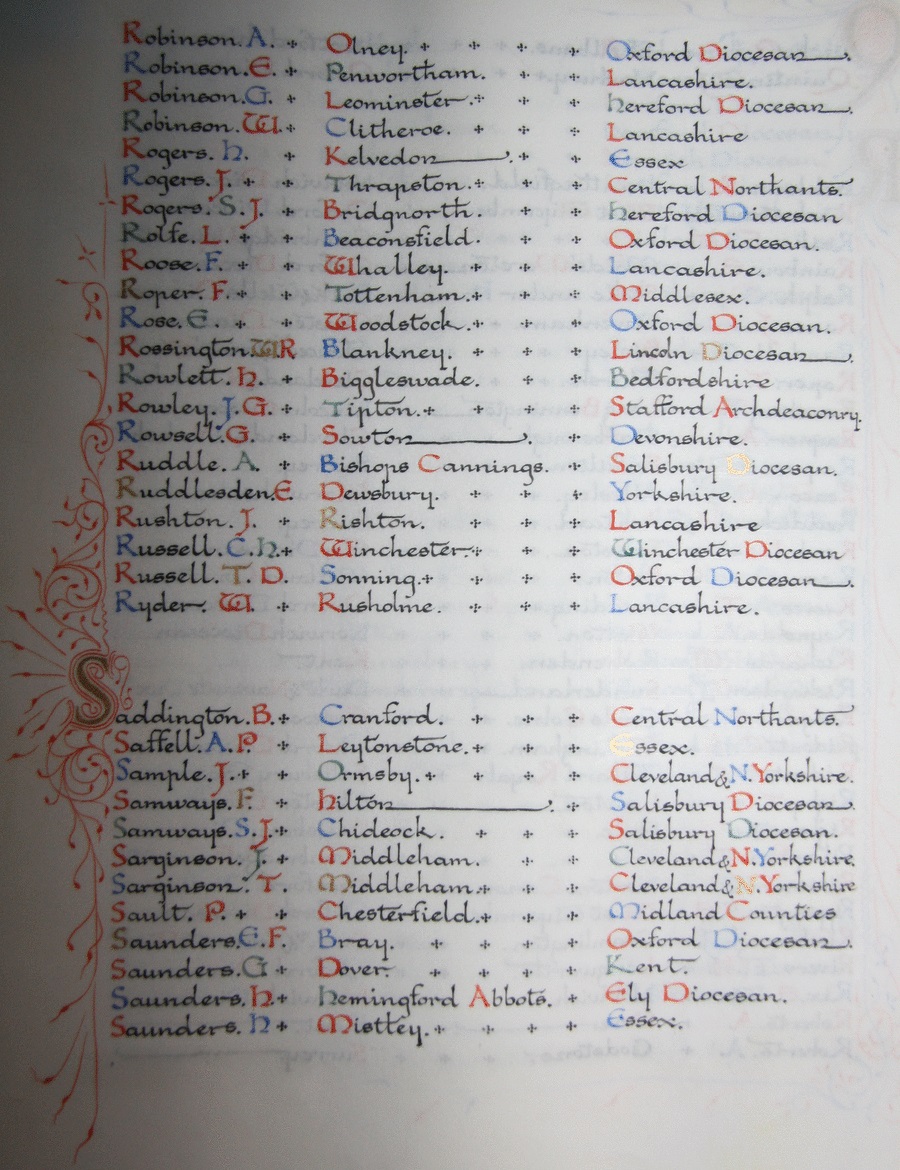 Robinson. A. Olney. Oxford Diocesan.
Robinson. E. Penwortham. Lancashire.
Robinson. G. Leominster. Hereford Diocesan.
Robinson. W. Clitheroe. Lancashire
Rogers. H. Kelvedon. Essex
Rogers. J. Thrapston. Central Northants.
Rogers. S. J. Bridgnorth. Hereford Diocesan
Rolfe. L. Beaconsfield. Oxford Diocesan.
Roose. F. Whalley. Lancashire.
Roper. F. Tottenham. Middlesex.
Rose. E. Woodstock. Oxford Diocesan.
Rossington. W R Blankney. Lincoln Diocesan.
Rowlett. H. Biggleswade. Bedfordshire
Rowley. J. G. Tipton. Stafford Archdeaconry.
Rowsell. G. Sowton. Devonshire.
Ruddle. A. Bishops Cannings. Salisbury Diocesan.
Ruddlesden. E. Dewsbury. Yorkshire.
Rushton. J. Rishton. Lancashire
Russell. C. H. Winchester. Winchester Diocesan
Russell. T. D. Sonning. Oxford Diocesan.
Ryder. W. Rusholme. Lancashire.
Saddington. B. Cranford. Central Northants.
Saffell. A. P. Leytonstone. Essex.
Sample. J. Ormsby. Cleveland & N. Yorkshire.
Samways. F. Hilton. Salisbury Diocesan.
Samways. S. J. Chideock. Salisbury Diocesan.
Sarginson. J. Middleham. Cleveland & N. Yorkshire.
Sarginson. T. Middleham. Cleveland & N. Yorkshire
Sault. P. Chesterfield. Midland Counties
Saunders. E. F. Bray. Oxford Diocesan.
Saunders. G Dover. Kent.
Saunders. H. Hemingford Abbots. Ely Diocesan.
Saunders. H Mistley. Essex.